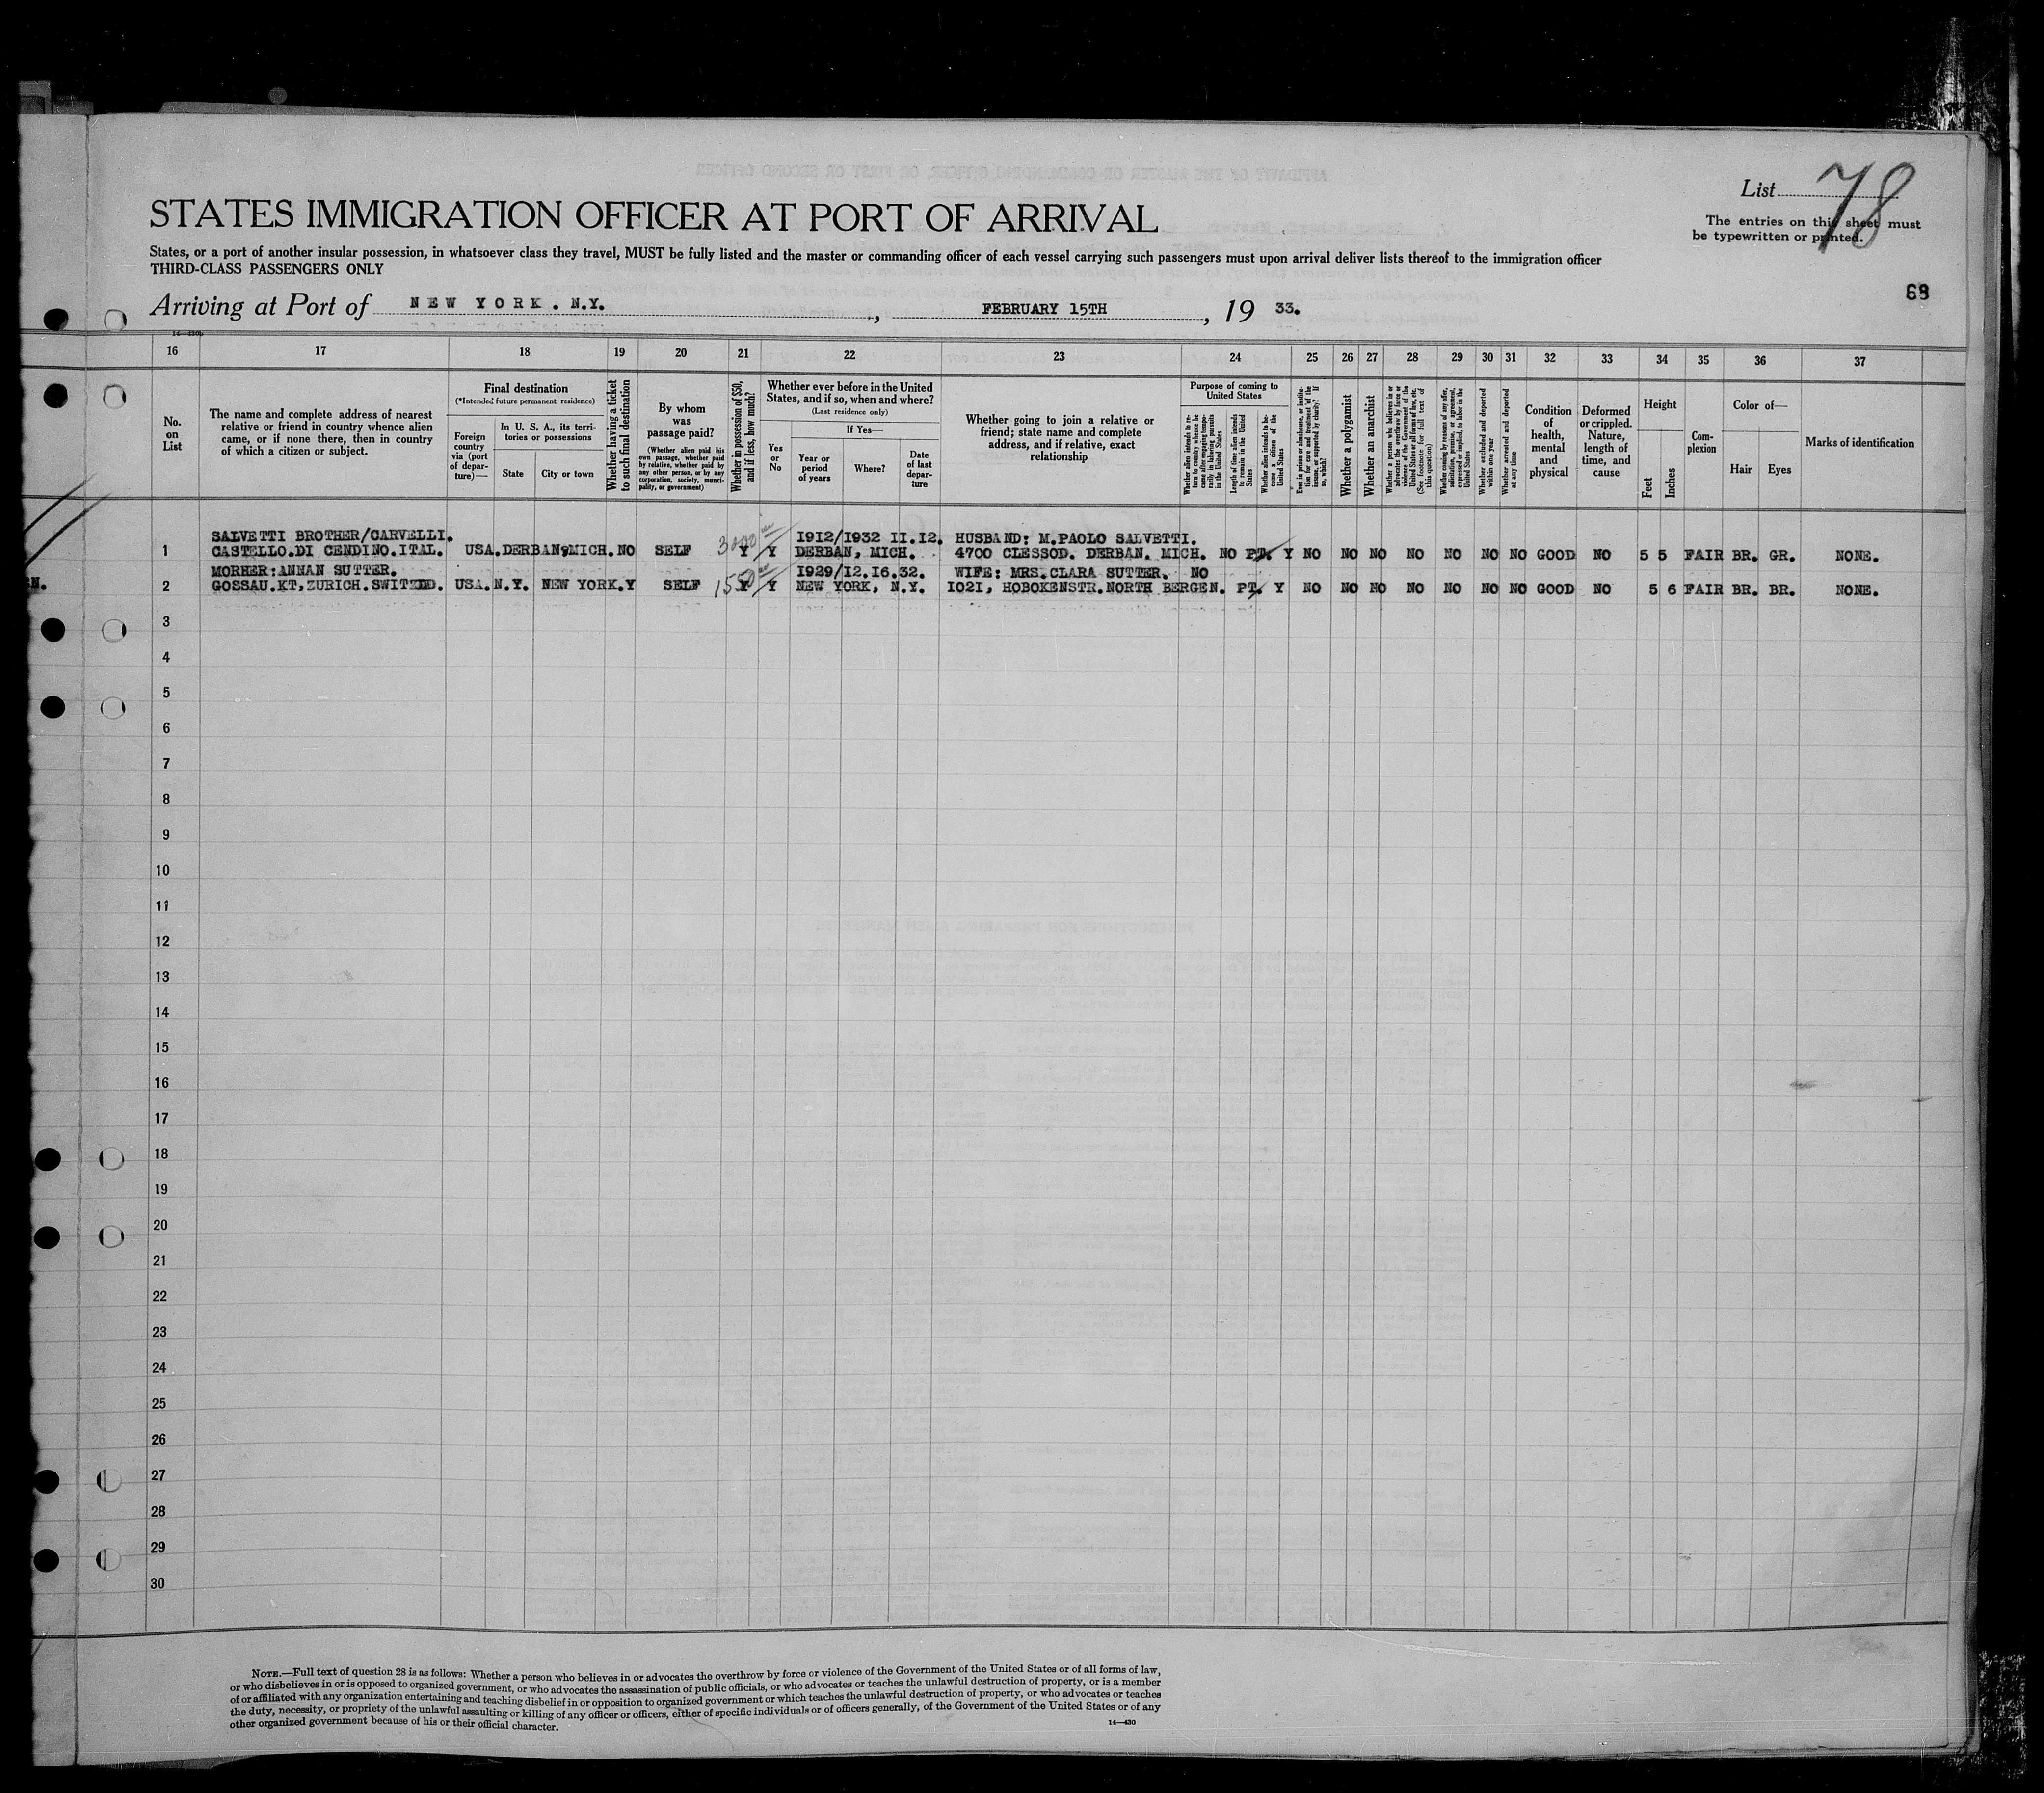 List 78
The entries on this sheet must
be typewritten or printed.
STATES IMMIGRATION OFFICER AT PORT OF ARRIVAL
States, or a port of another insular possession, in whatsoever class they travel, MUST be fully listed and the master or commanding officer of each vessel carrying such passengers must upon arrival deliver lists thereof to the immigration officer
THIRD-CLASS PASSENGERS ONLY
68
Arriving at Port of NEW YORK. N.Y. , FEBRUARY 15TH , 19 33.
16 17 18 19 20 21 22 23 24 25 26 27 28 29 30 31 32 33 34 35 36 37
No. on List
The name and complete address of nearest
relative or friend in country whence alien
came, or if none there, then in country
of which a citizen or subject.
Final destination
(*Intended future permanent residence)
Foreign country via (port of departure)—
In U. S. A., its territories or possessions
State
City or town
Whether having a ticket to such final destination
By whom was passage paid?
(Whether alien paid his own passage, whether paid by relative, whether paid by any other person, or by any corporation, society, municipality, or government)
Whether in possession of $50, and if less, how much?
Whether ever before in the United States, and if so, when and where?
(Last residence only)
Yes or No
If Yes—
Year or period of years
Where?
Date of last departure
Whether going to join a relative or
friend; state name and complete
address, and if relative, exact
relationship
Purpose of coming to United States
Whether alien intends to return to country whence he came after engaging temporarily in laboring pursuits in the United States
Length of time alien intends to remain in the United States
Whether alien intends to become a citizen of the United States
Ever in prison or almshouse, or institution for care and treatment of the insane, or supported by charity? If so, which?
Whether a polygamist
Whether an anarchist
Whether a person who believes in or advocates the overthrow by force or violence of the Government of the United States or all forms of law, etc. (See footnote for full text of this question)
Whether coming by reasons of any offer, solicitation, promise, or agreement, expressed or implied, to labor in the United States
Whether excluded and deported within one year
Whether arrested and deported at any time
Condition of health, mental and physical
Deformed or crippled. Nature, length of time, and cause
Height
Feet
Inches
Complexion
Color of—
Hair
Eyes
Marks of identification
SALVETTI BROTHER/CARVELLI. 1912/1932 II.I2. HUSBAND: M.PAOLO SALVETTI.
1 CASTELLO.DI CENDINO.ITAL. USA.DERBAN,MICH. NO SELF 3000 Y Y DERBAN, MICH. 4700 CLESSOD. DERBAN. MICH. NO PT. Y NO NO NO NO NO NO NO GOOD NO 5 5 FAIR BR. GR. NONE.
MORHER:ANNAN SUTTER. I929/I2.I6.32. WIFE: MRS.CLARA SUTTER. NO
N. 2 GOSSAU.KT,ZURICH.SWITZD. USA.N.Y. NEW YORK.Y SELF 1550 Y Y NEW YORK, N.Y. I02I, HOBOKENSTR.NORTH BERGEN. PT. Y NO NO NO NO NO NO NO GOOD NO 5 6 FAIR BR. BR. NONE.
3
4
5
6
7
8
9
10
11
12
13
14
15
16
17
18
19
20
21
22
23
24
25
26
27
28
29
30
NOTE.—Full text of question 28 is as follows: Whether a person who believes in or advocates the overthrow by force or violence of the Government of the United States or of all forms of law,
or who disbelieves in or is opposed to organized government, or who advocates the assassination of public officials, or who advocates or teaches the unlawful destruction of property, or is a member
of or affiliated with any organization entertaining and teaching disbelief in or opposition to organized government or which teaches the unlawful destruction of property, or who advocates or teaches
the duty, necessity, or propriety of the unlawful assaulting or killing of any officer or officers, either of specific individuals or of officers generally, of the Government of the United States or of any
other organized government because of his or their official character.
14—430